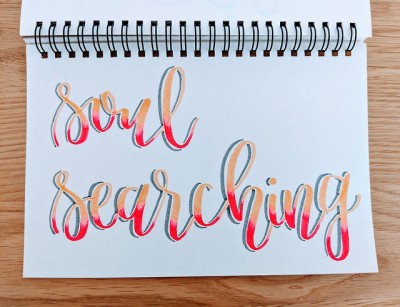 soul
searching